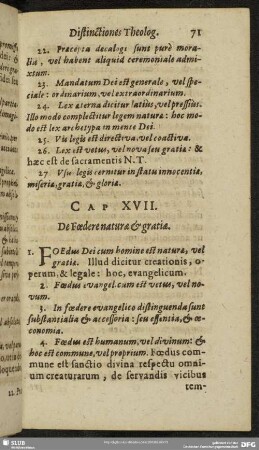 Distinctiones Theolog. 71
22. Præcepta decalogi sunt purè mora-
lia, vel habent aliquid ceremoniale admi-
xtum.
23. Mandatum Dei est generale, vel spe-
ciale: ordinarium, vel extraordinarium.
24. Lex æterna dicitur latiùs, vel pressius.
Illo modo complectitur legem natura: hoc mo-
do est lex archetypa in mente Dei.
25. Vis legis est directiva, vel coactiva.
26. Lex est vetus, vel nova seu gratia: &
hæc est de sacramentis N. T.
27. Usus legis cernitur in statu innocentiæ,
miseriæ, gratiæ, & gloriæ.
CAP XVII.
De Fœdere naturæ & gratiæ.
1. FOEdus Dei cum homine est naturæ, vel
gratiæ. Illud dicitur creationis, o-
perum, & legale: hoc, evangelicum.
2. Fœdus evangelicum est vetus, vel no-
vum.
3. In fœdere evangelico distinguenda sunt
substantialia & accessoria: seu essentia, & œ-
conomia.
4. Fœdus est humanum, vel divinum: &
hoc est commune, vel proprium. Fœdus com-
mune est sanctio divina respectu omni-
um creaturarum, de servandis vicibus
tem-
SLUB
DFG